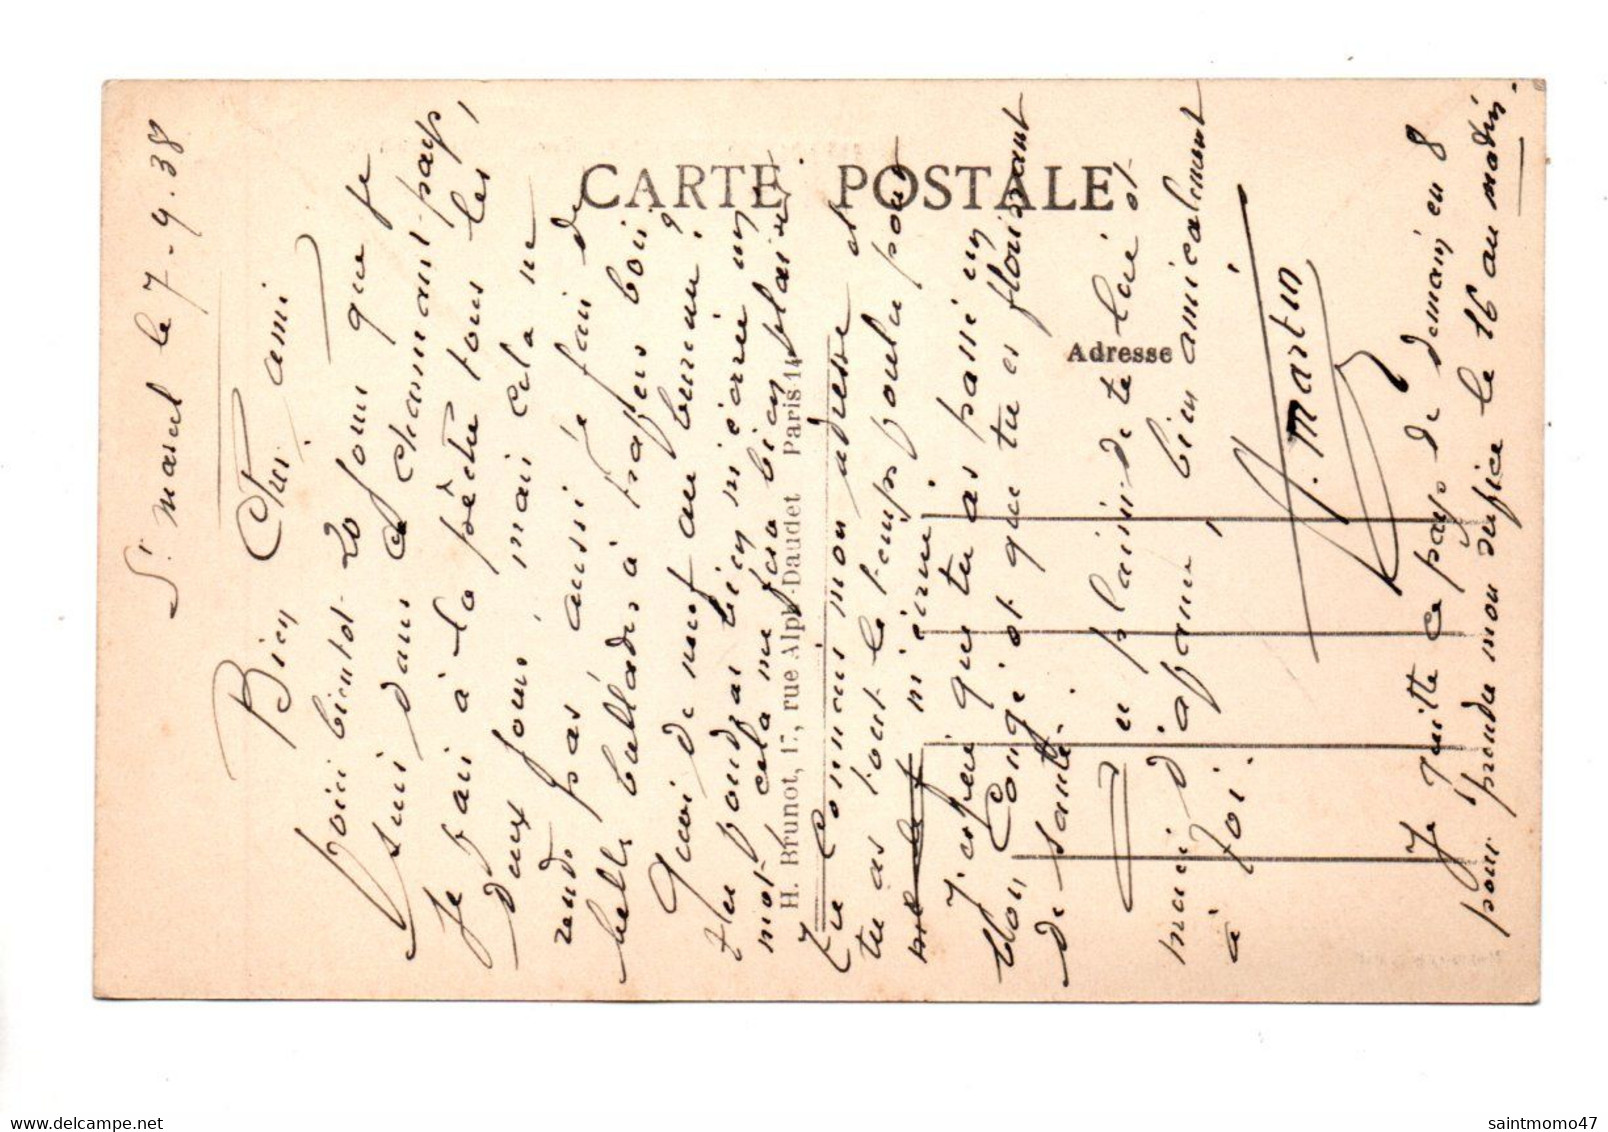 CARTE POSTALE
Adresse
H. Brunot, 17, rue Alph-Daudet Paris 14
St Marcel le 7-9-38
Bien Cher ami
Voici bientot 20 jours que je
suis dans ce charmant pays,
Je vais à la pêche tous les
deux jours, mais cela ne
rend pas aussi je fais de
belles ballades à travers bois
Quoi de neuf au bureau ?
Tu voudras bien m'écrire un
mot cela me fera bien plaisir
Tu connais mon adresse et
tu as tout le temps voulu pour
m'écrire.
J'espère que tu as passé un
bon Congé et que tu es florissant
de santé.
Au plaisir de te lire et
merci d'avance, bien amicalement
à toi.
Martin
Je quitte ce pays de demain en 8
pour prendre mon service le 16 au matin.
saintmomo47